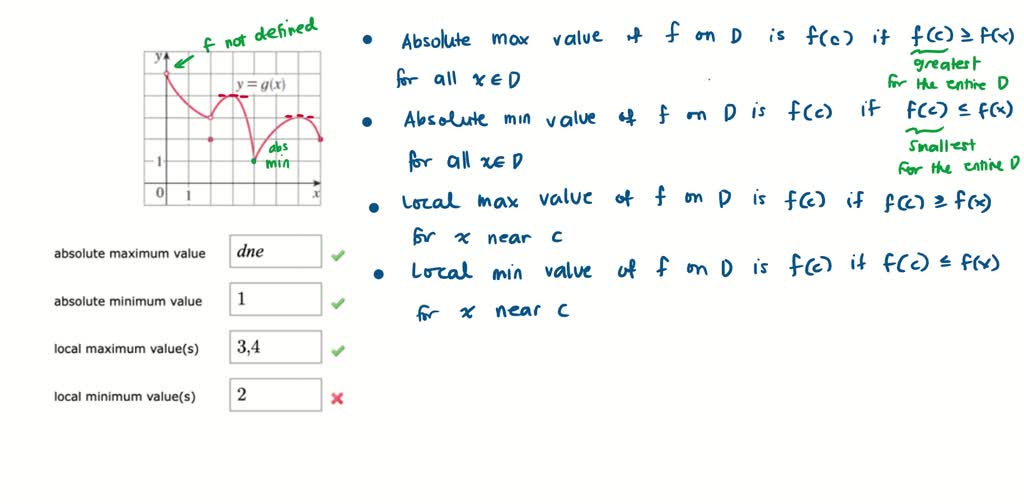 f not defined
y
y = g(x)
abs
min
1
0
1
x
absolute maximum value
dne
absolute minimum value
1
local maximum value(s)
3,4
local minimum value(s)
2
• Absolute max value of f on D is f(c) if f(c) ≥ f(x)
greatest
for the entire D
for all x ∈ D
• Absolute min value of f on D is f(c) if f(c) ≤ f(x)
smallest
for the entire D
for all x ∈ D
• Local max value of f on D is f(c) if f(c) ≥ f(x)
for x near c
• Local min value of f on D is f(c) if f(c) ≤ f(x)
for x near c